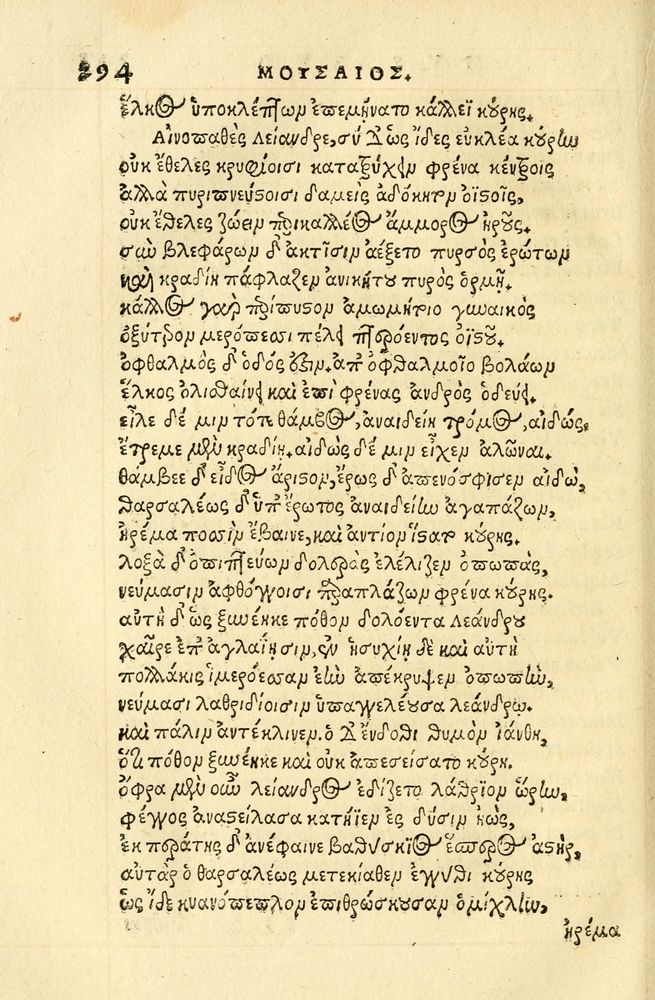 294 ΜΟΥΣΑΙΟΣ.
ἕλκος ὑποκλέπτων ἐπεμήνατο κάλλεϊ κούρης.
Αἰνοπαθὲς Λείανδρε, σὺ δ' ὡς ἴδες εὐκλέα κούρην
οὐκ ἔθελες κρυφίοισι κατατρύχειν φρένα κέντροις
ἀλλὰ πυριπνεύστοισι δαμεὶς ἀδόκητον ὀϊστοῖς,
οὐκ ἔθελες ζώειν περικαλλέος ἄμμορος ἡροῦς.
σὺν βλεφάρων δ' ἀκτῖσιν ἀέξετο πυρσὸς ἐρώτων
καὶ κραδίη πάφλαζεν ἀνικήτου πυρὸς ὁρμῇ.
κάλλος γὰρ περίπυστον ἀμωμήτοιο γυναικὸς
ὀξύτερον μερόπεσσι πέλει πτερόεντος ὀϊστοῦ.
ὀφθαλμὸς δ' ὁδός ἐστιν. ἀπ' ὀφθαλμοῖο βολάων
ἕλκος ὀλισθαίνει καὶ ἐπὶ φρένας ἀνδρὸς ὁδεύει.
εἷλε δέ μιν τότε θάμβος, ἀναιδείη τρόμος, αἰδώς,
ἔτρεμε μὲν κραδίη. αἰδὼς δέ μιν εἶχεν ἁλῶναι.
θάμβεε δ' εἶδος ἄριστον, ἔρως δ' ἀπενόσφισεν αἰδῶ,
θαρσαλέως δ' ὑπ' ἔρωτος ἀναιδείην ἀγαπάζων,
ἠρέμα ποσσὶν ἔβαινε, καὶ ἀντίον ἵστατο κούρης.
λοξὰ δ' ὀπιπτεύων δολερὰς ἐλέλιζεν ὀπωπάς,
νεύμασιν ἀφθόγγοισι παραπλάζων φρένα κούρης.
αὐτὴ δ' ὡς ξυνέηκε πόθον δολόεντα Λεάνδρου
χαῖρε ἐπ' ἀγλαΐῃσιν, ἐν ἡσυχίῃ δὲ καὶ αὐτὴ
πολλάκις ἱμερόεσσαν ἑὴν ἀπέκρυψεν ὀπωπὴν,
νεύμασι λαθριδίοισιν ὑπαγγελέουσα λεάνδρῳ.
καὶ πάλιν ἀντέκλινεν. ὁ δ' ἔνδοθι θυμὸν ἰάνθη,
ὅττι πόθον ξυνέηκε καὶ οὐκ ἀπεσείσατο κούρη.
ὄφρα μὲν οὖν λείανδρος ἐδίζετο λάθριον ὥρην,
φέγγος ἀναστείλασα κατήϊεν ἐς δύσιν ἠώς,
ἐκ περάτης δ' ἀνέφαινε βαθύσκιος ἕσπερος ἀστήρ,
αὐτὰρ ὁ θαρσαλέως μετεκίαθεν ἐγγύθι κούρης
ὡς ἴδε κυανόπεπλον ἐπιθρώσκουσαν ὁμίχλην,
ἠρέμα